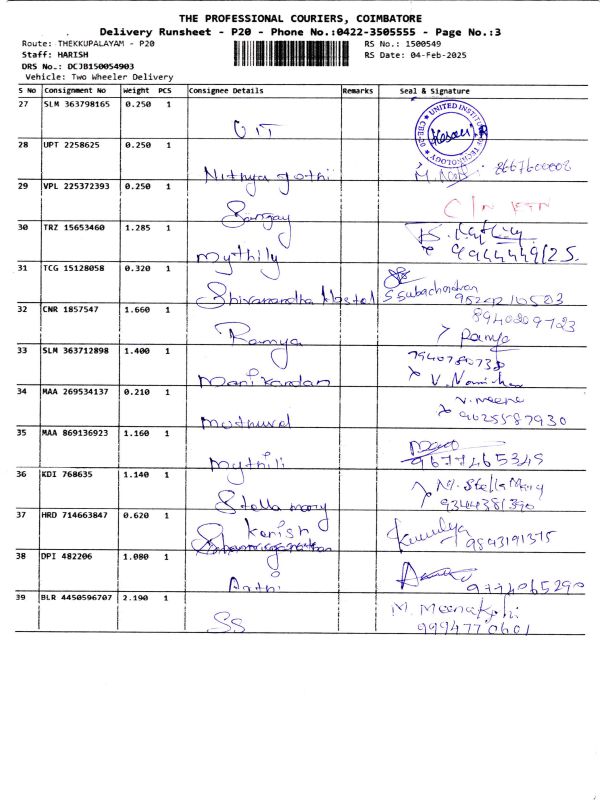 THE PROFESSIONAL COURIERS, COIMBATORE
Delivery Runsheet - P20 - Phone No.:0422-3505555 - Page No.:3
Route: THEKKUPALAYAM - P20
RS No.: 1500549
Staff: HARISH
RS Date: 04-Feb-2025
DRS No.: DCJB150054903
Vehicle: Two Wheeler Delivery
S No Consignment No Weight PCS Consignee Details Remarks Seal & Signature
27 SLM 363798165 0.250 1
UIT
28 UPT 2258625 0.250 1
Nithya Jothi
M. 8667600002
29 VPL 225372393 0.250 1
C/N RTN
30 TRZ 15653460 1.285 1
Mythily
9944449125.
31 TCG 15128058 0.320 1
Shivanandha Hostel S Subachandran
32 CNR 1857547 1.660 1
8940209723
Ramya Ramya
33 SLM 363712898 1.400 1
7940780738
Manikandan
34 MAA 269534137 0.210 1
V. Meena
Muthuvel 9025587930
35 MAA 869136923 1.160 1
Mythili 9677465345
36 KDI 768635 1.140 1
M. Stella Mary
Stella mary 9344381390
37 HRD 714663847 0.620 1
Kanish
9843191375
38 DPI 482206 1.080 1
Aathi 9774065290
39 BLR 4450596707 2.190 1
M. Meenakshi
SS 9994770601